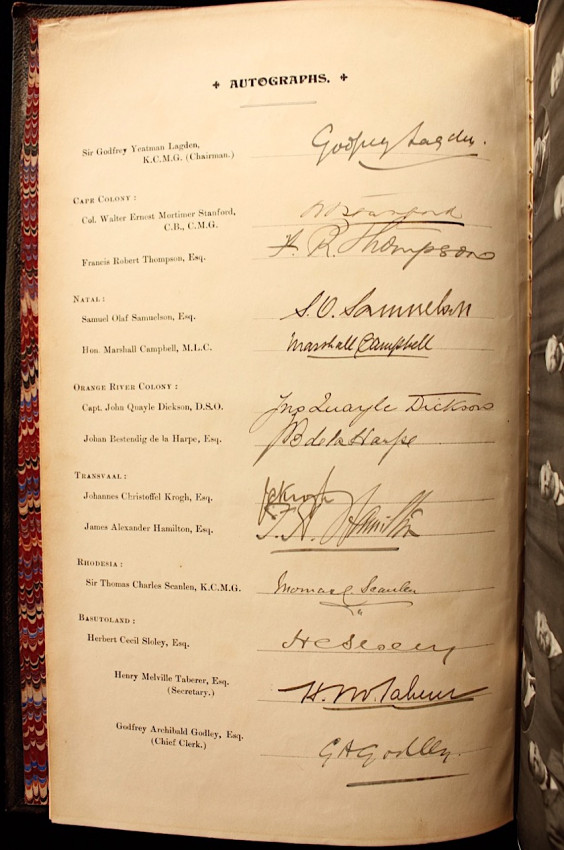 ✢ AUTOGRAPHS. ✢
Sir Godfrey Yeatman Lagden,
K.C.M.G. (Chairman.)
Godfrey Lagden.
CAPE COLONY :
Col. Walter Ernest Mortimer Stanford,
C.B., C.M.G.
WE Stanford
Francis Robert Thompson, Esq.
F. R. Thompson
NATAL :
Samuel Olaf Samuelson, Esq.
S. O. Samuelson
Hon. Marshall Campbell, M.L.C.
Marshall Campbell
ORANGE RIVER COLONY :
Capt. John Quayle Dickson, D.S.O.
Jno Quayle Dickson
Johan Bestendig de la Harpe, Esq.
JB de la Harpe
TRANSVAAL :
Johannes Christoffel Krogh, Esq.
JC Krogh
James Alexander Hamilton, Esq.
J. A. Hamilton
RHODESIA :
Sir Thomas Charles Scanlen, K.C.M.G.
Thomas C Scanlen
BASUTOLAND :
Herbert Cecil Sloley, Esq.
H C Sloley
Henry Melville Taberer, Esq.
(Secretary.)
H. M. Taberer
Godfrey Archibald Godley, Esq.
(Chief Clerk.)
G A Godley.